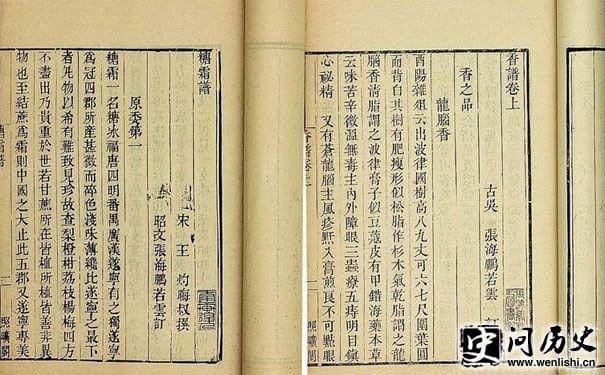 香譜卷上
古吳 張海鵬若雲 訂
香之品
龍腦香
酉陽雜俎云出波律國樹高八九丈可六七尺圍葉圓
而背白其樹有肥瘦形似松脂作杉木氣乾脂謂之龍
腦香清脂謂之波律膏子似豆蔻皮有甲錯海藥本草
云味苦辛微温無毒主內外障眼三蟲療五痔明目鎮
心祕精 又有蒼龍腦主風疹入膏煎良不可點眼
香譜卷上
照曠閣
糖霜譜
宋 王 灼晦叔撰
昭文張海鵬若雲訂
原委第一
糖霜一名糖冰福唐四明番禺廣漢遂寧有之獨遂寧
為冠四郡所産甚微而碎色淺味薄纔比遂寧之最下
者凡物以希有難致見珍故查梨橙柑荔枝楊梅四方
不盡出乃貴重於世若甘蔗所在皆植所植皆善非異
物也至結蔗為霜則中國之大止此五郡又遂寧專美
糖霜譜
一
照曠閣
问历史
www.wenlishi.cn